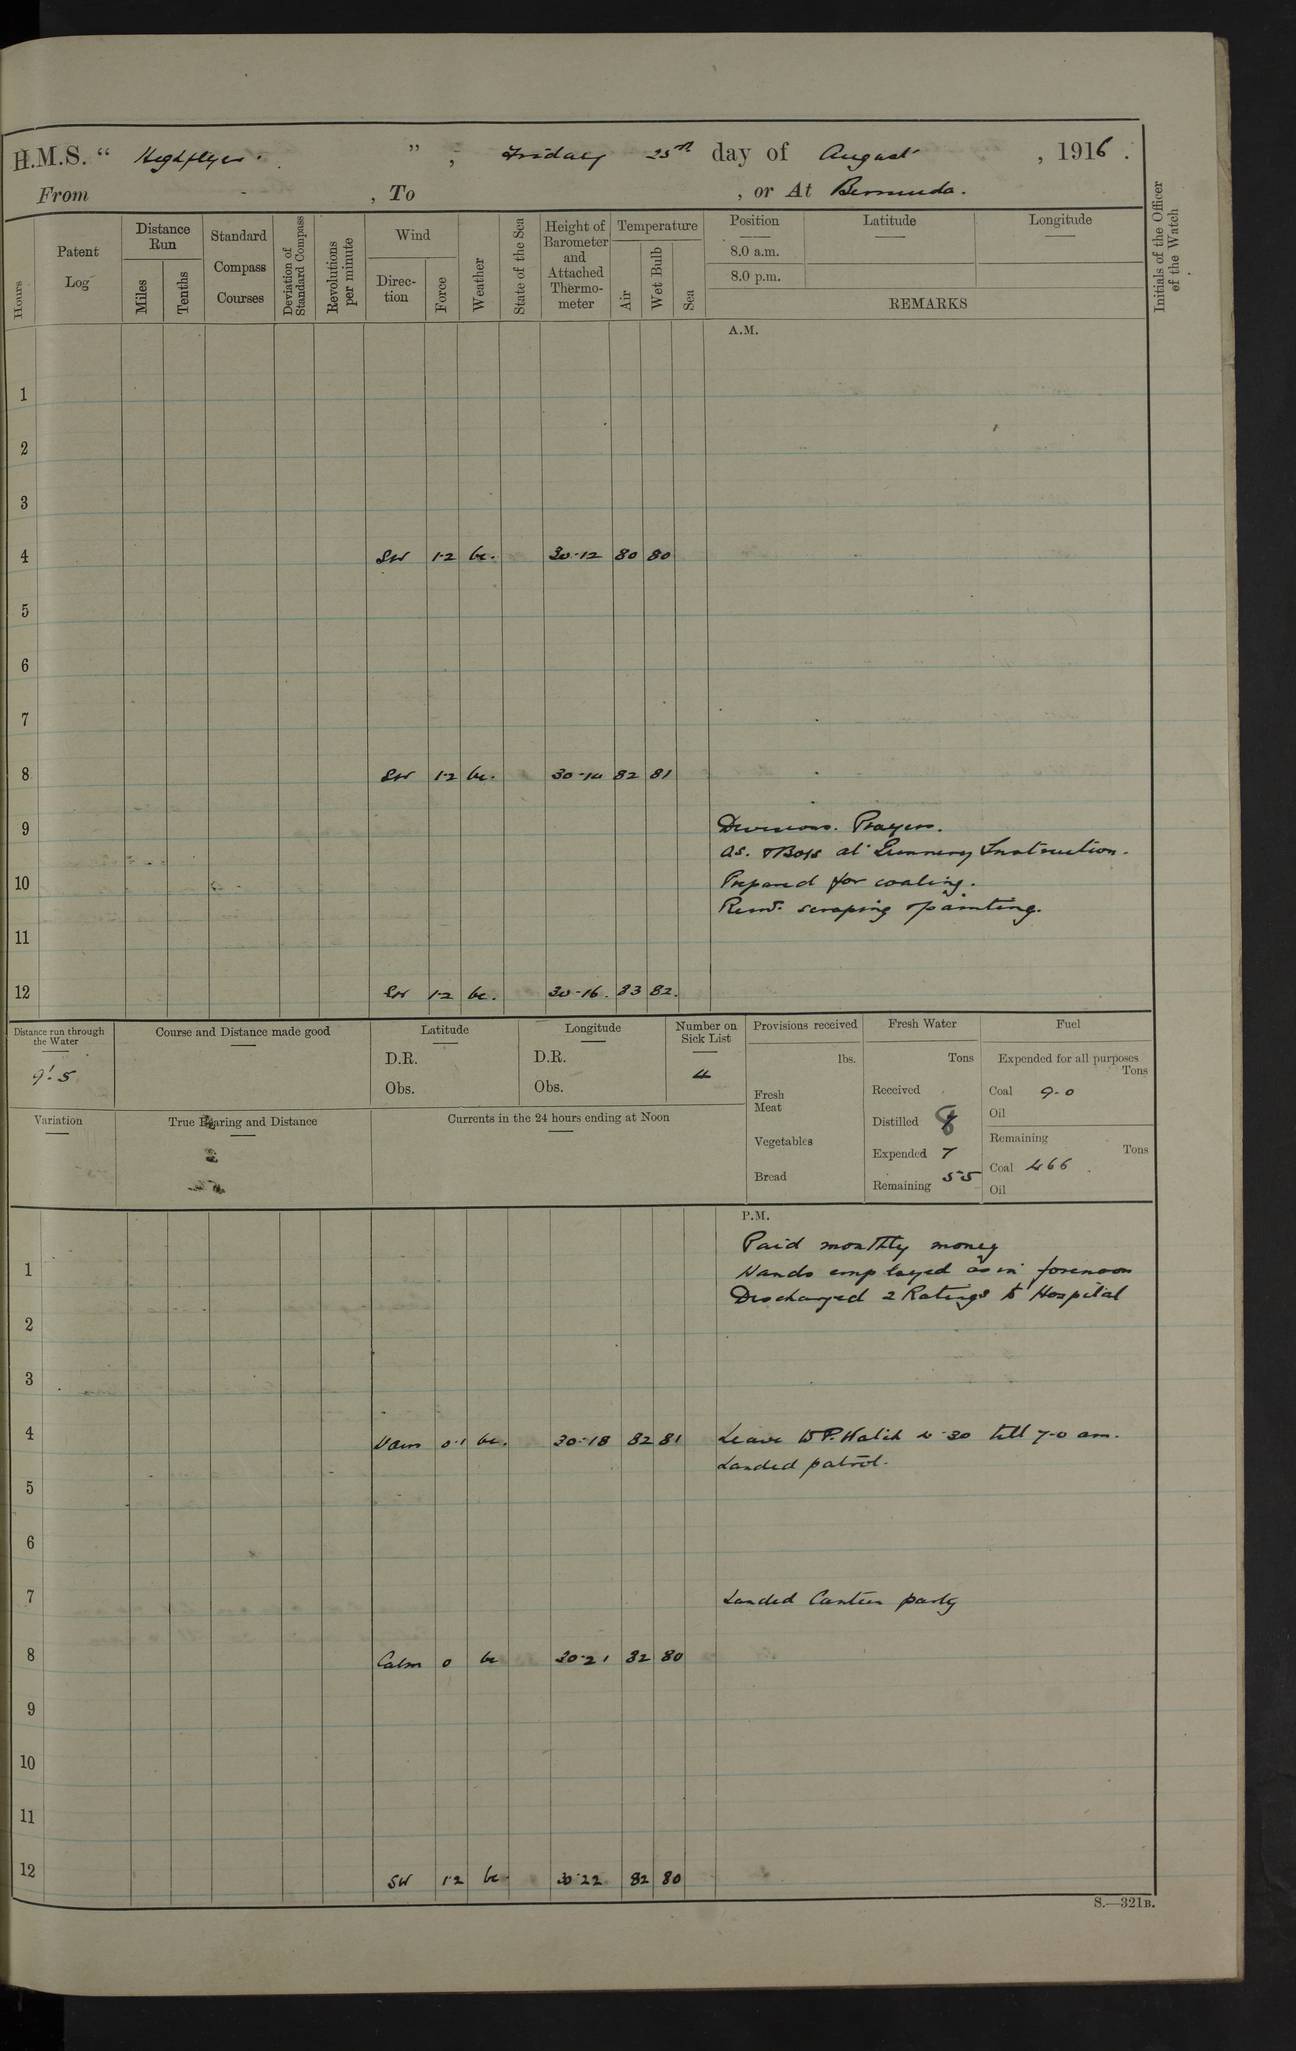 H.M.S. “ Highflyer. ” , Friday 25th day of August , 1916.
From , To , or At Bermuda.
Hours
Patent Log
Distance Run
Miles
Tenths
Standard Compass Courses
Deviation of Standard Compass
Revolutions per minute
Wind
Direction
Force
Weather
State of the Sea
Height of Barometer and Attached Thermometer
Temperature
Air
Wet Bulb
Sea
Position
8.0 a.m.
8.0 p.m.
Latitude
Longitude
REMARKS
Initials of the Officer of the Watch
A.M.
1
2
3
4 SW 1·2 bc. 30·12 80 80
5
6
7
8 SW 1·2 bc. 30·14 82 81
9 Divisions. Prayers.
as. & Boys at Gunnery Instruction.
10 Prepared for coaling.
Remdr. scraping & painting.
11
12 SW 1·2 bc. 30·16. 83 82.
Distance run through the Water
9'.5
Course and Distance made good
Latitude
D.R.
Obs.
Longitude
D.R.
Obs.
Number on Sick List
4
Provisions received
lbs.
Fresh Meat
Vegetables
Bread
Fresh Water
Tons
Received
Distilled 8
Expended 7
Remaining 55
Fuel
Expended for all purposes
Tons
Coal 9·0
Oil
Remaining
Tons
Coal 466
Oil
Variation
True Bearing and Distance
Currents in the 24 hours ending at Noon
P.M.
Paid monthly money
1 Hands employed as in forenoon
Discharged 2 Ratings to Hospital
2
3
4 Vars 0·1 bc. 30·18 82 81 Leave to P. Watch 4·30 till 7·0 am.
Landed patrol.
5
6
7 Landed Canteen party
8 Calm 0 bc 30·21 82 80
9
10
11
12 SW 1·2 bc 30·22 82 80
S.—321B.